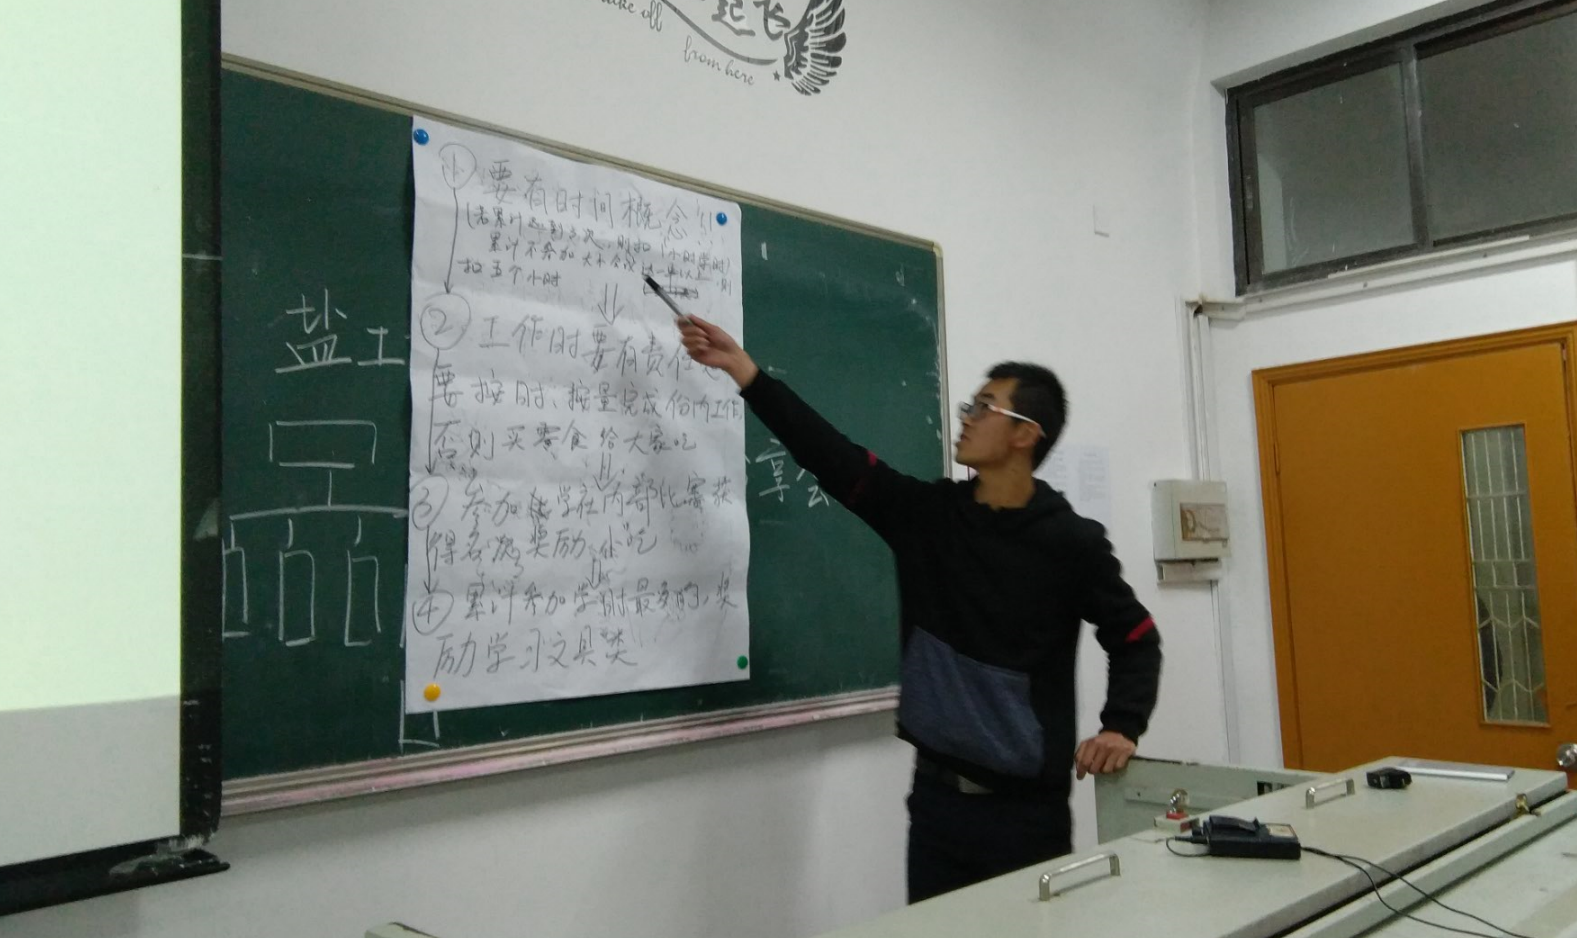 起飞
take off
from here
① 要有时间概念!!
(若累计迟到3次,则扣1小时学时)
累计不参加大小会议达一半以上,则
扣五个小时
② 工作时要有责任
要按时、按量完成份内工作,
否则买零食给大家吃
③ 参加学社内部比赛获
得名次奖励小吃
④ 累计参加学时最多的,奖
励学习文具类
盐工
享会